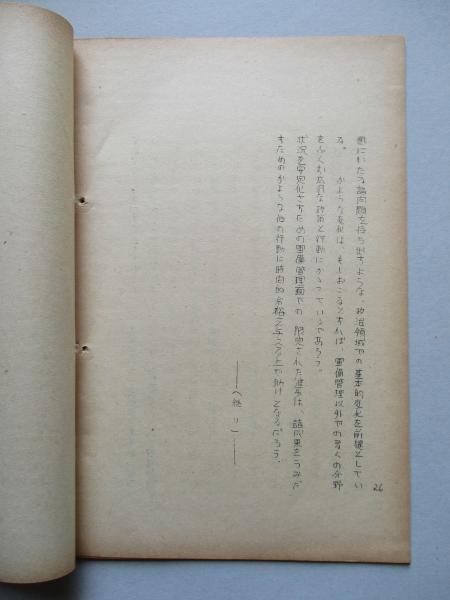 囲にわたる諸問題を待ち刻ちような、政治領域での基本的変化を前提としてい
る。かような変化は、もしおこるとすれば、軍備管理以外での多くの分野
をふくむ広汎な政策と行動にかかっているであろう。
状況を安定化させるための軍備管理面での限定された進歩は、諸成果をうみだ
すためのかような他の行動に時間的余裕を与える上の助けとなるだろう。
——(終り)——
26